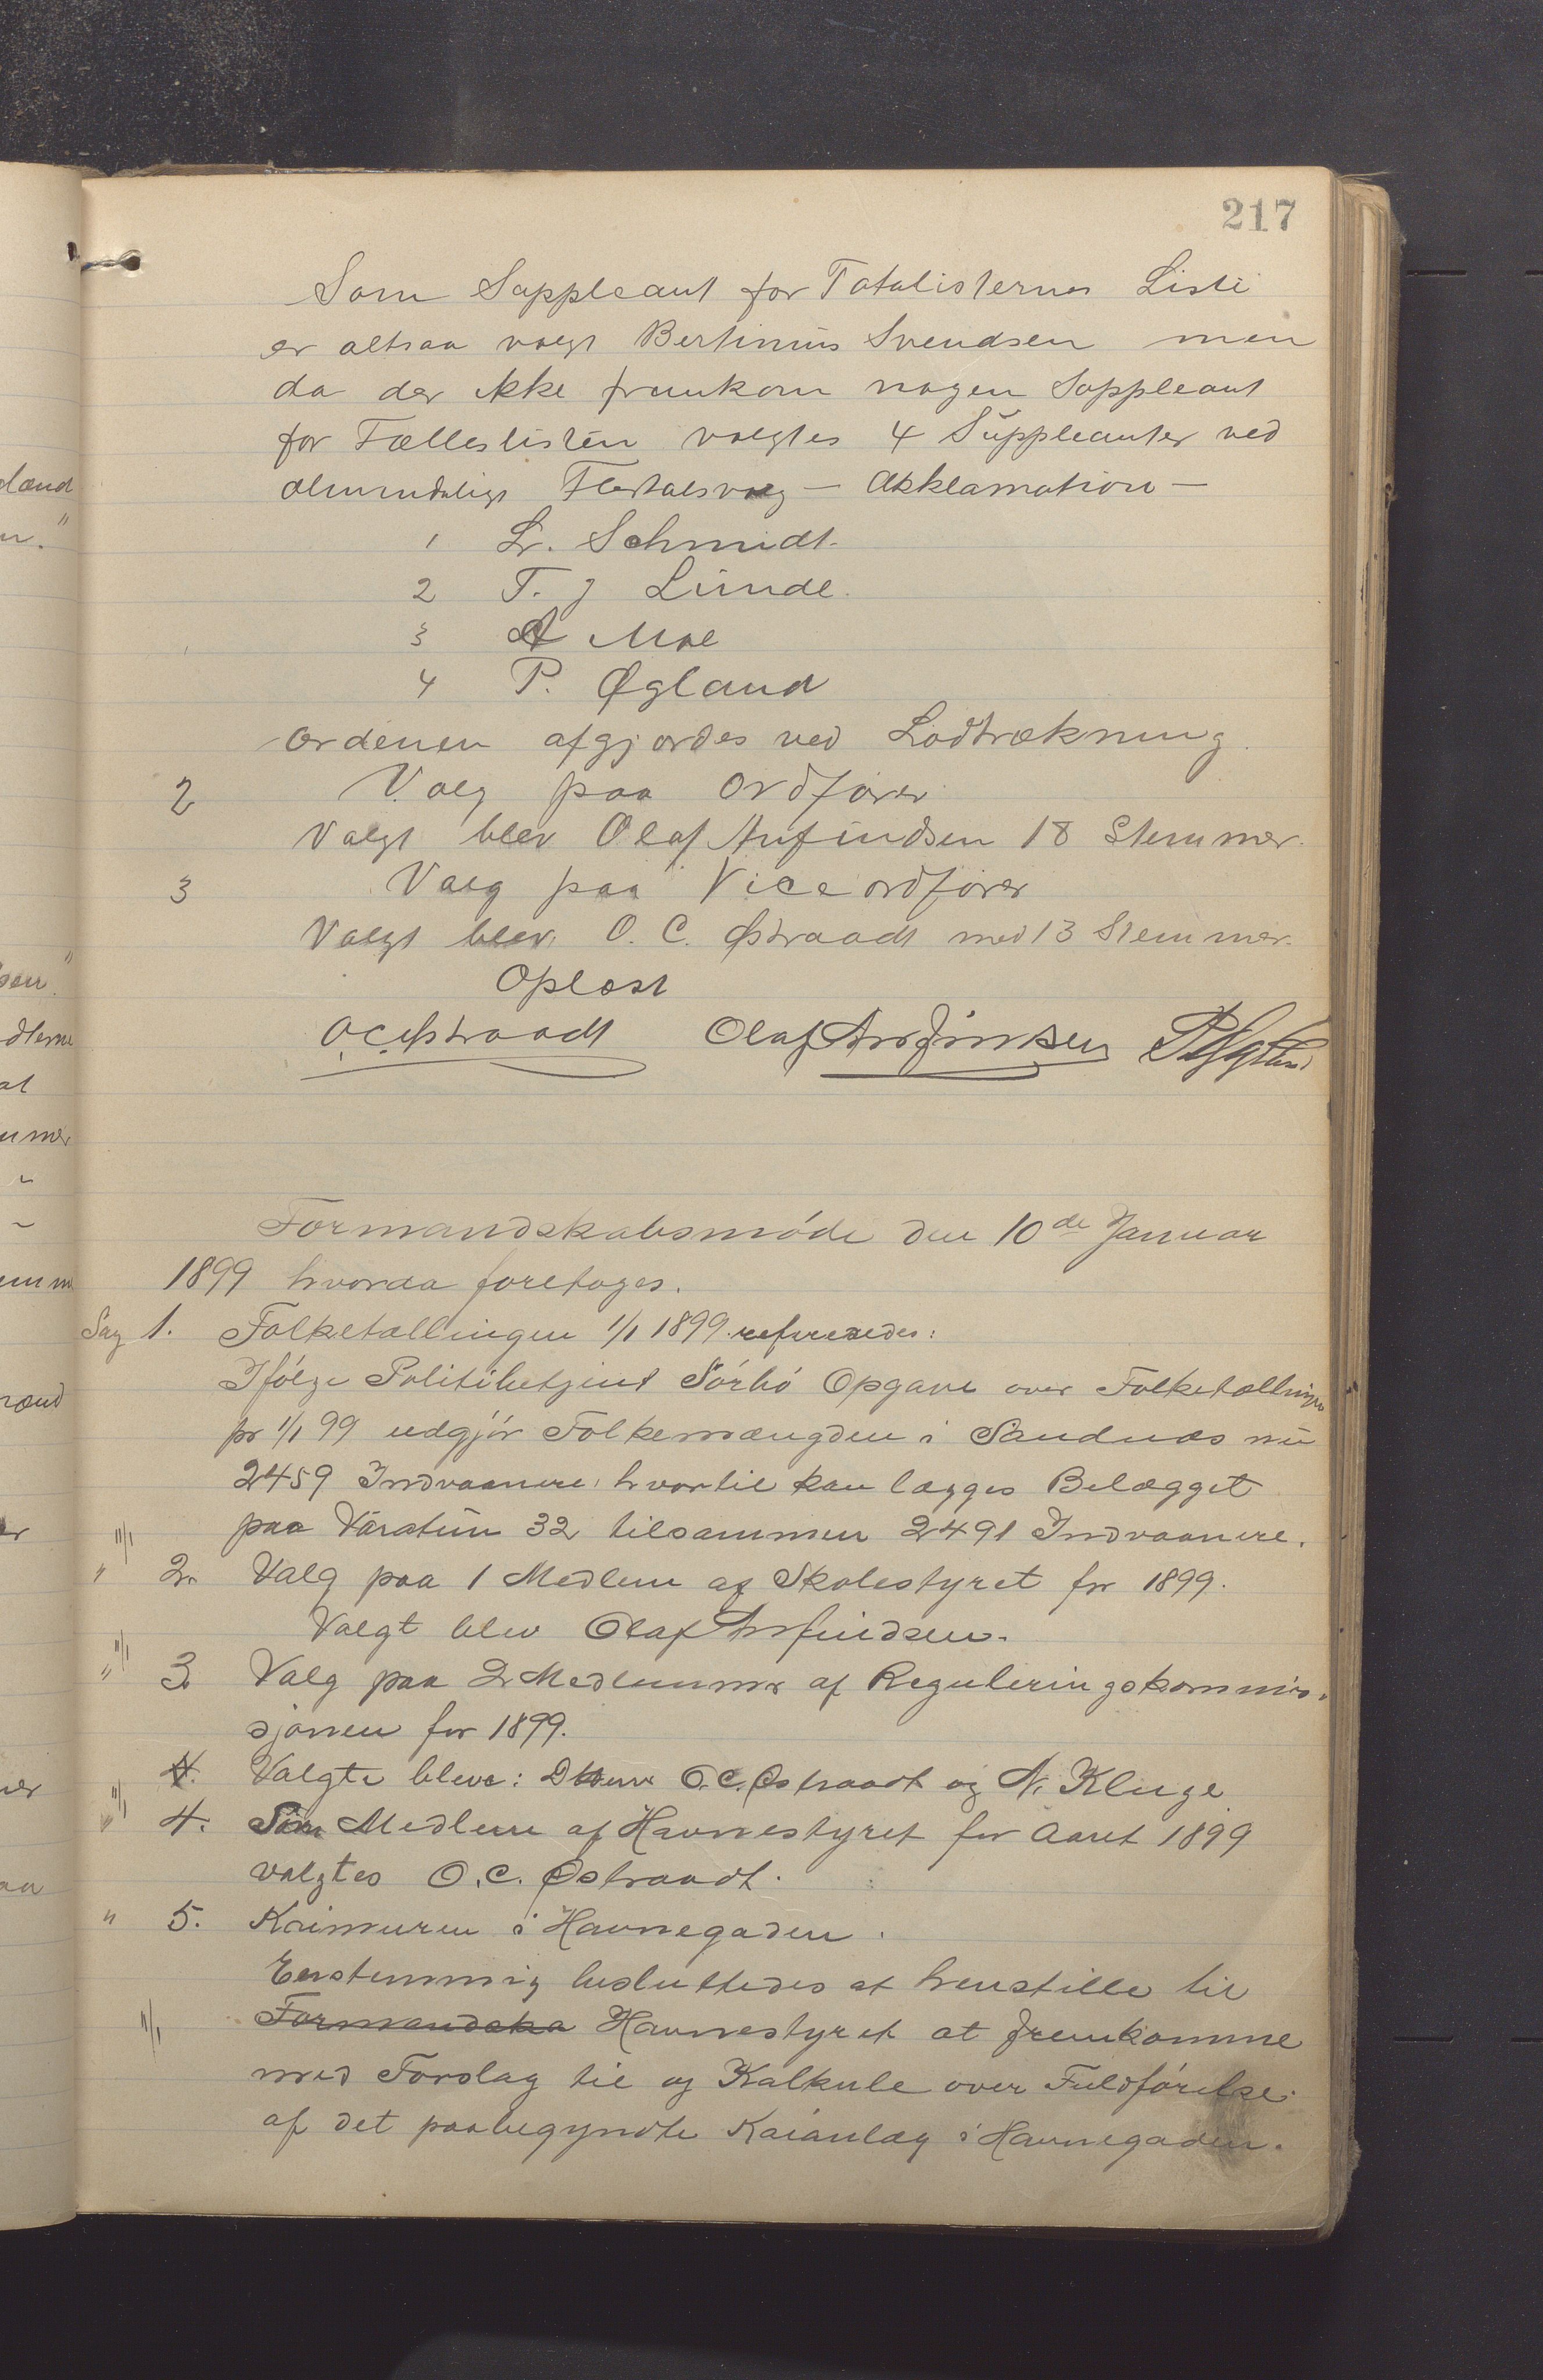 217
Som Suppleant for Totalisternes Liste
er altsaa valgt Bertinius Svendsen men
da der ikke fremkom nogen Suppleant
for Fælleslisten valgtes 4 Suppleanter ved
almindeligt Flertalsvalg — Akklamation —
1 Lr. Schmidt.
2 T. J Lunde.
3 A Moe
4 P. Øgland
Ordenen afgjordes ved Lodtrækning.
2 Valg paa Ordfører
Valgt blev Olaf Anfindsen 18 Stemmer.
3 Valg paa Viceordfører
Valgt blev O. C. Østraadt med 13 Stemmer.
Oplæst
O.C. Østraadt Olaf Anfinsen P. Øgland
Formandskabsmøde den 10de Januar
1899 hvorda foretoges.
Sag 1. Folketællingen 1/1 1899 refereredes:
Ifølge Politibetjent Sørbø Opgave over Folketællingen
pr 1/1 99 udgjør Folkemængden i Sandnæs nu
2459 Indvaanere, hvortil kan lægges Belægget
paa Varatun 32 tilsammen 2491 Indvaanere.
" 2. Valg paa 1 Medlem af Skolestyret for 1899.
Valgt blev Olaf Anfindsen.
" 3. Valg paa 2 Medlemmer af Reguleringskommis-
sjonen for 1899.
4. Valgte bleve: D'Herrer O.C. Østraadt og N. Kluge
" 4. Som Medlem af Havnestyret for Aaret 1899
valgtes O.C. Østraadt.
" 5. Kaimuren i Havnegaden.
Enstemmig besluttedes at henstille til
Formandska Havnestyret at fremkomme
med Forslag til og Kalkule over Fuldførelse
af det paabegyndte Kaianlæg i Havnegaden.